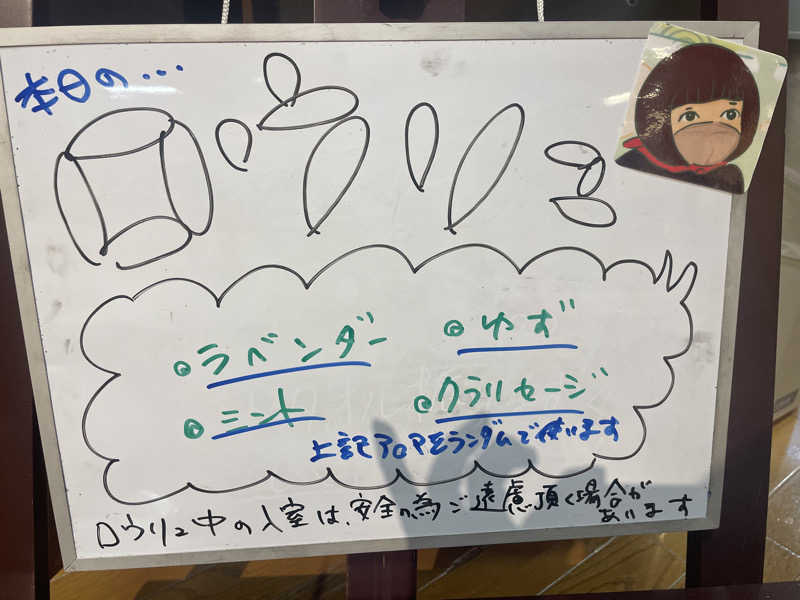 本日の…
ロウリュ
◎ラベンダー ◎ゆず
◎ミント ◎クラリセージ
上記アロマをランダムで使います
ロウリュ中の入室は、安全の為ご遠慮頂く場合があります